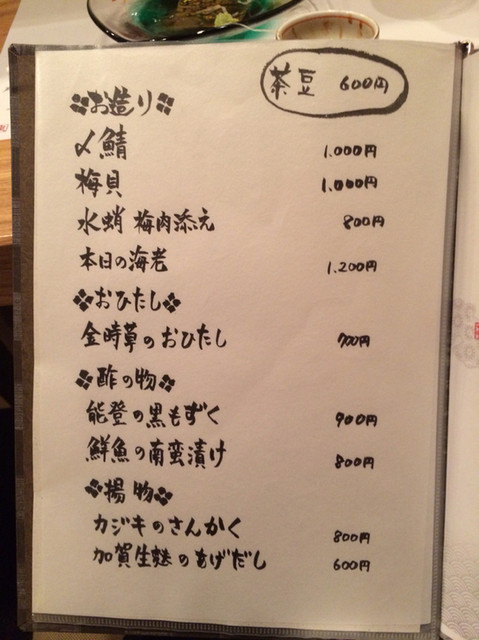 茶豆 600円
お造り
〆鯖 1.000円
梅貝 1.000円
水蛸 梅肉添え 800円
本日の海老 1.200円
おひたし
金時草のおひたし 700円
酢の物
能登の黒もずく 900円
鮮魚の南蛮漬け 800円
揚物
カジキのさんかく 800円
加賀生麩のあげだし 600円